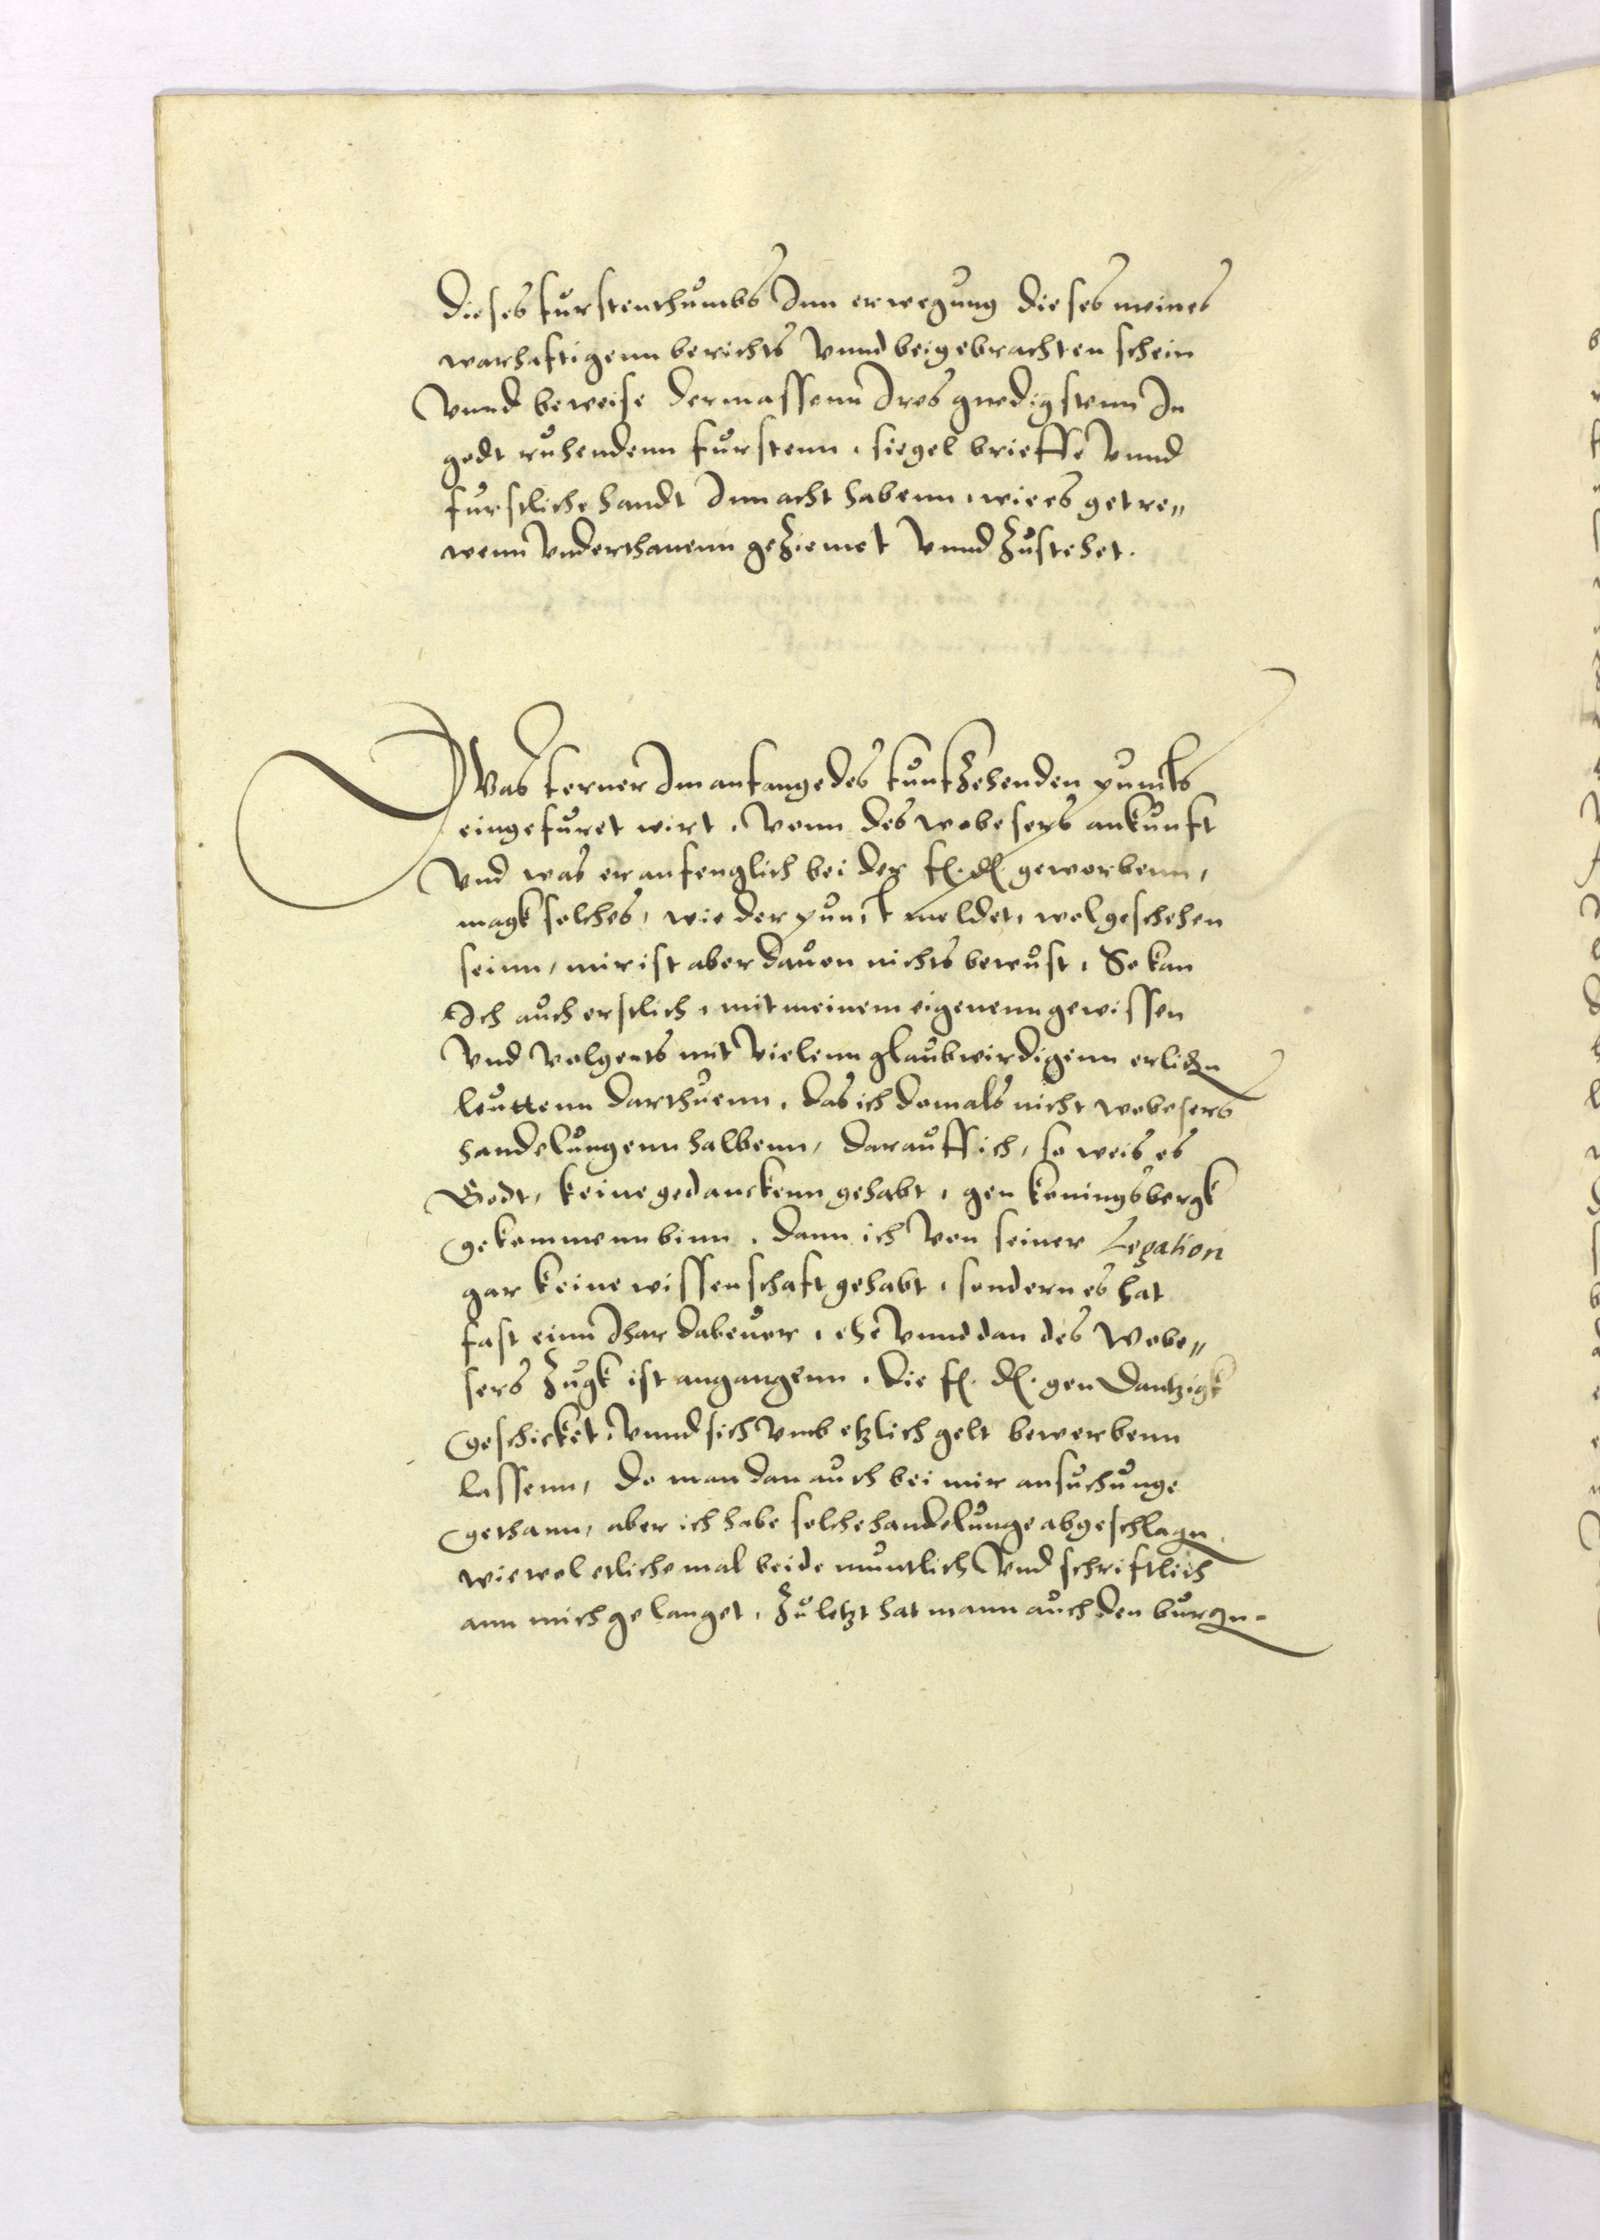 dieses furstenthumbs Inn erwegung dieses meines
warhaftigenn berichts vnnd beigebrachten schein
vnnd beweise dermassenn Ires gnedigstenn In
godt ruhendenn furstenn, siegel brieffe vnnd
furstliche handt Inn acht habenn, wie es getre„
wenn vnderthanenn geziemet vnnd zustehet.
Was ferner Im anfange des funfzehenden puncts
eingefuret wirt, vonn des wobesers ankunft
vnd was er anfenglich bei der f. d. geworbenn,
magk solches, wie der punct meldet, wol geschehen
seinn, mir ist aber dauon nichts bewust, So kan
Ich auch erstlich, mit meinem eigenenn gewissen
vnd volgents mit vielenn glaubwirdigenn erlichen
leuttenn darthuenn, das ich domals nicht wobesers
handelungenn halbenn, darauff ich, so weis es
Godt, keine gedanckenn gehabt, gen koningsbergk
gekommenn binn, dann ich von seiner Legation
gar keine wissenschaft gehabt, sondern es hat
fast einn Ihar dabeuor, ehe vnnd dan des Wobe„
sers zugk ist angangenn, die f. d. gen Dantzigk
geschicket, vnnd sich vmb etzlich gelt bewerbenn
lassenn, do man dan auch bei mir ansuchunge
gethann, aber ich habe solche handelunge abgeschlagen,
wiewol etliche mal beide muntlich vnd schriftlich
ann mich gelanget, zuletzt hat mann auch den burgen-